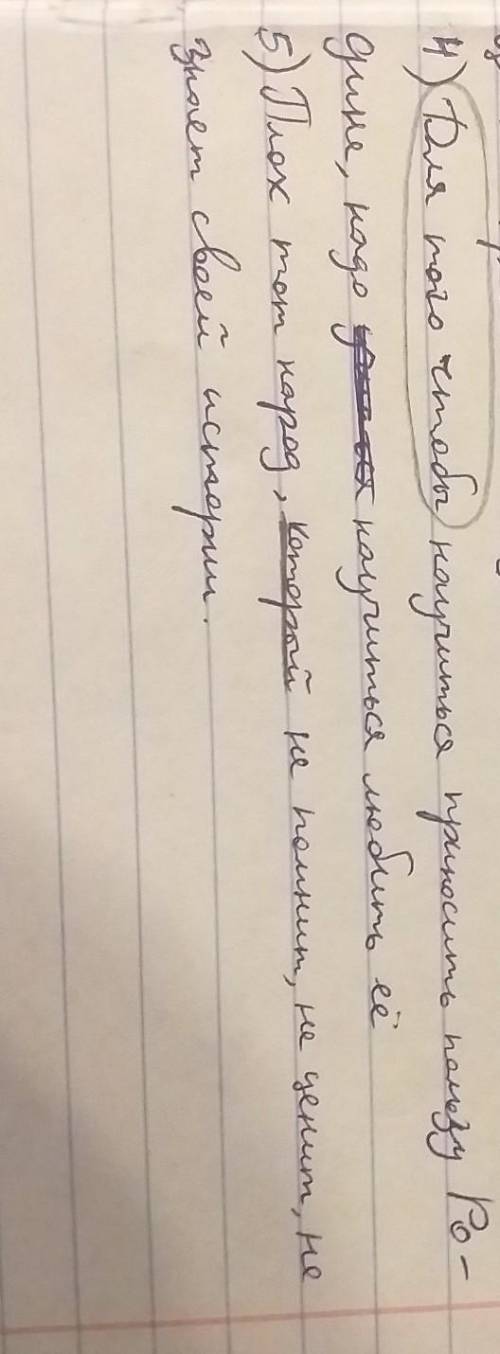 4) Для того чтобы научиться приносить пользу Ро-
дине, надо научиться любить её
5) Плох тот народ, который не помнит, не ценит, не
знает своей истории.